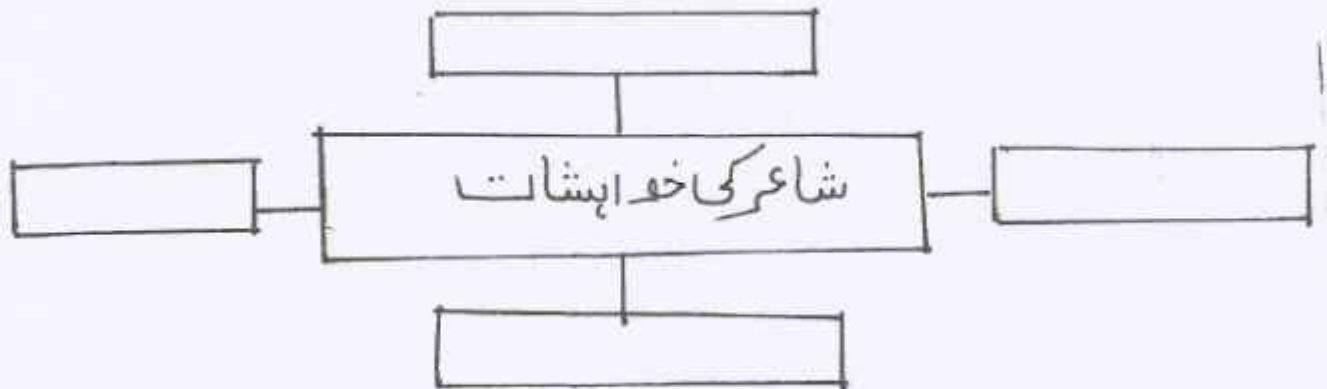 شاعر کی خواہشات